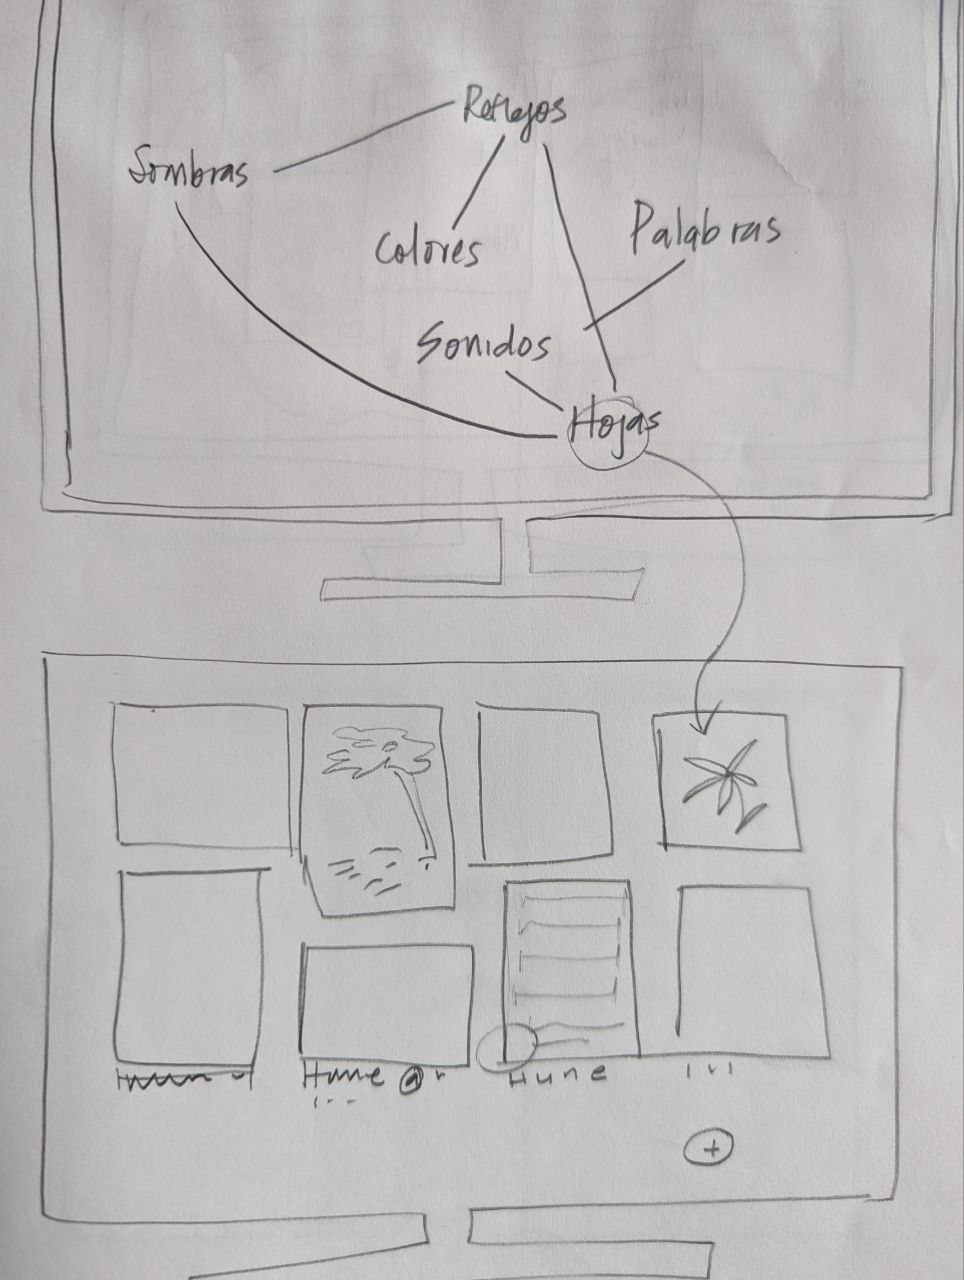 Reflejos
Sombras
Colores
Palabras
Sonidos
Hojas
+